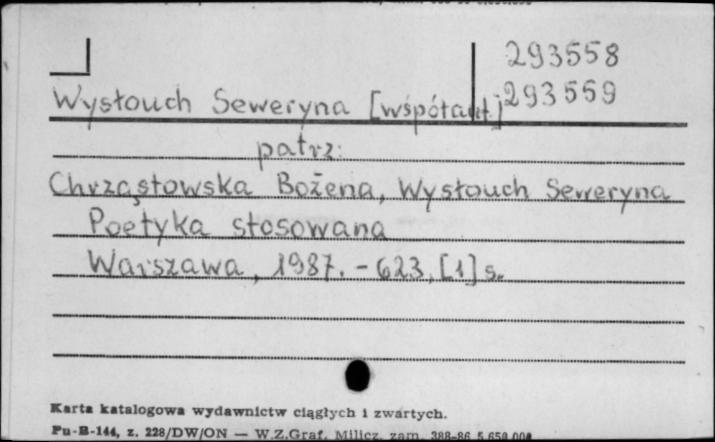 293558
293559
Wysłouch Seweryna [współaut.]
patrz:
Chrząstowska Bożena, Wysłouch Seweryna
Poetyka stosowana
Warszawa, 1987. - 623, [1] s.
Karta katalogowa wydawnictw ciągłych i zwartych.
Pu-B-144, z. 228/DW/ON — W.Z.Graf. Milicz, zam. 388-86 5.650.000